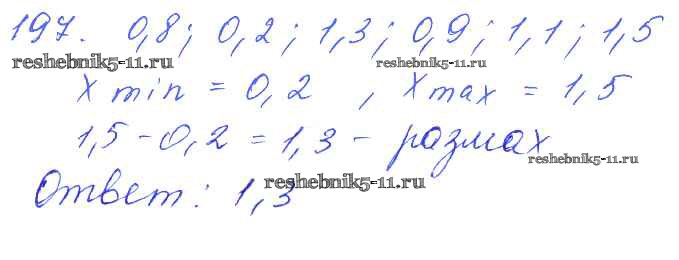 197. 0,8; 0,2; 1,3; 0,9; 1,1; 1,5
reshebnik5-11.ru reshebnik5-11.ru
x min = 0,2 , x max = 1,5
1,5 - 0,2 = 1,3 - размах
reshebnik5-11.ru
Ответ: 1,3
reshebnik5-11.ru